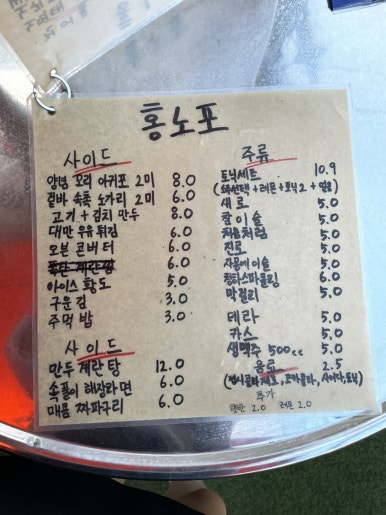 홍노포
사이드
양념 꼬리 아귀포 2미 8.0
겉바 속촉 노가리 2미 6.0
고기 + 김치 만두 8.0
대만 우유튀김 6.0
오븐 콘버터 6.0
폭탄 계란찜 6.0
아이스 황도 5.0
구운 김 3.0
주먹 밥 3.0
사이드
만두 계란탕 12.0
속풀이 해장라면 6.0
매콤 짜파구리 6.0
주류
토닉세트 10.9
(소주선택 + 레몬 + 토닉2 + 얼음)
새로 5.0
참이슬 5.0
처음처럼 5.0
진로 5.0
자몽에이슬 5.0
청하스파클링 6.0
막걸리 5.0
테라 5.0
카스 5.0
생맥주 500cc 5.0
음료 2.5
추가
레몬 2.0